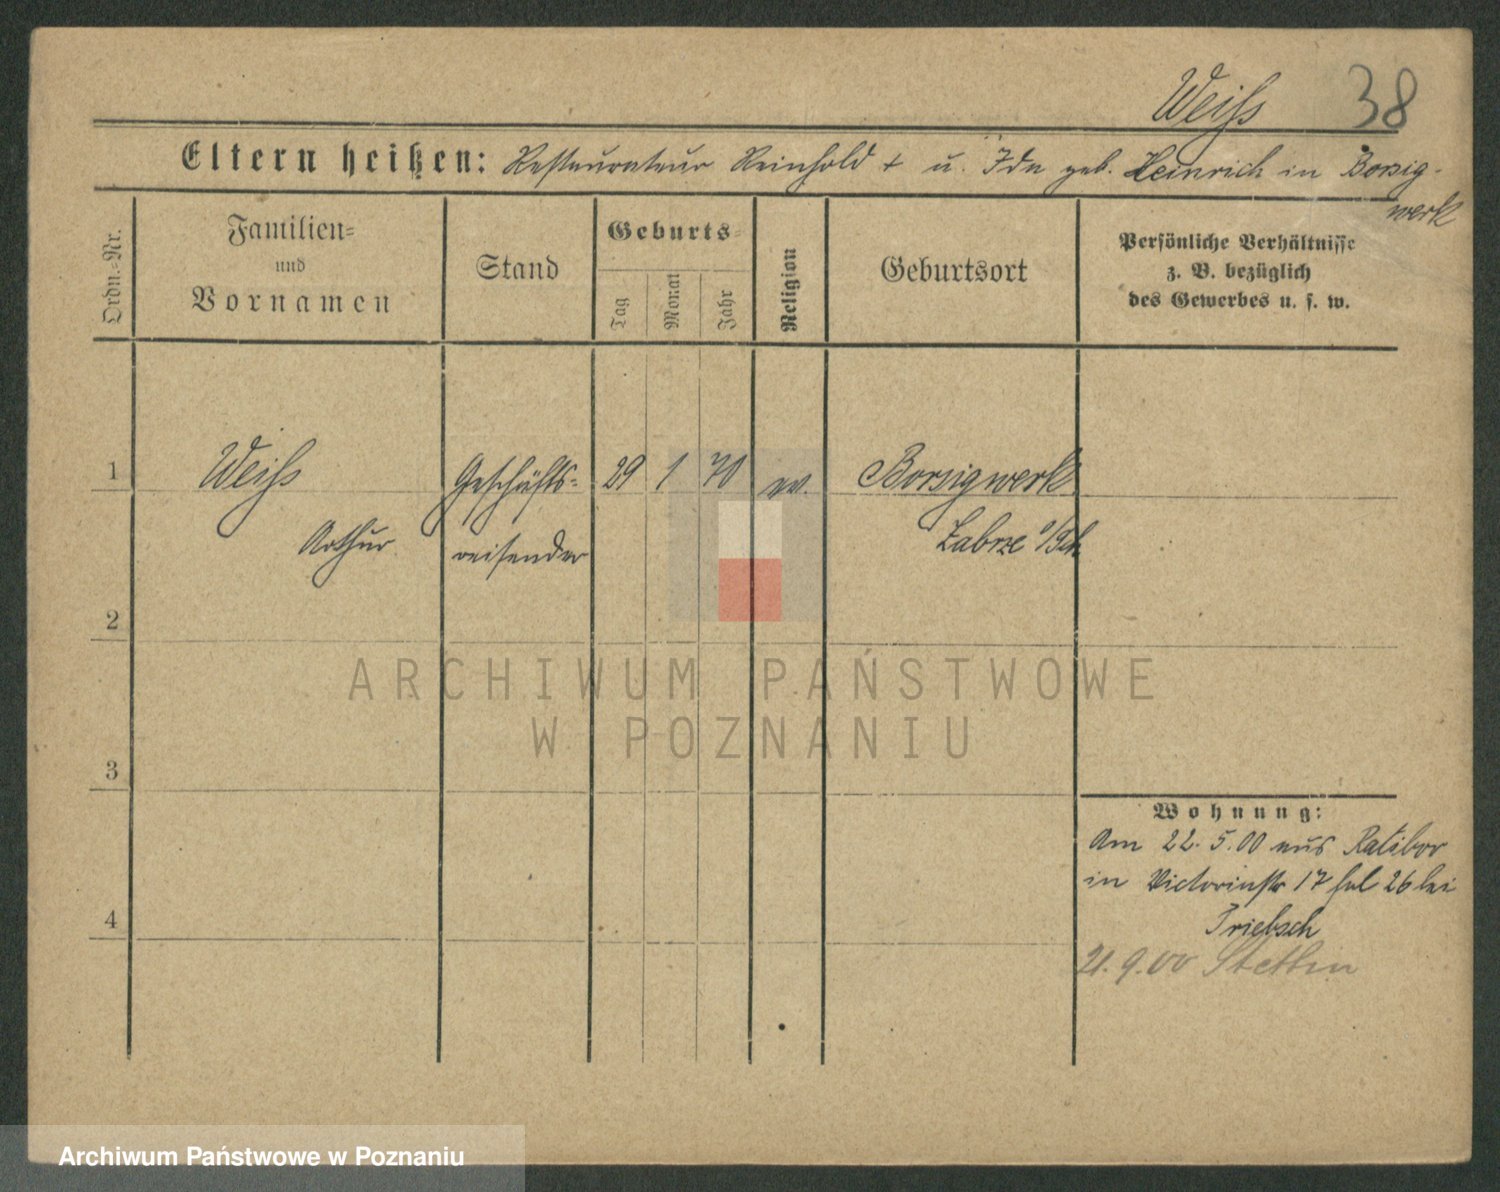 Weiß 38
Eltern heißen: Restaurateur Reinhold + u. Ida geb. Heinrich in Borsig-
werk
Ordn.-Nr.
Familien-
und
Vornamen
Stand
Geburts-
Tag
Monat
Jahr
Religion
Geburtsort
Persönliche Verhältnisse
z. B. bezüglich
des Gewerbes u. s. w.
1 Weiß Geschäfts- 29 1 70 ev. Borsigwerk
Arthur reisender Zabrze o/Sch
2
3
4
ARCHIWUM PAŃSTWOWE
W POZNANIU
Wohnung:
Am 22.5.00 aus Ratibor
in Victoriastr 17 26 bei
Triebsch
21.9.00 Stettin
Archiwum Państwowe w Poznaniu